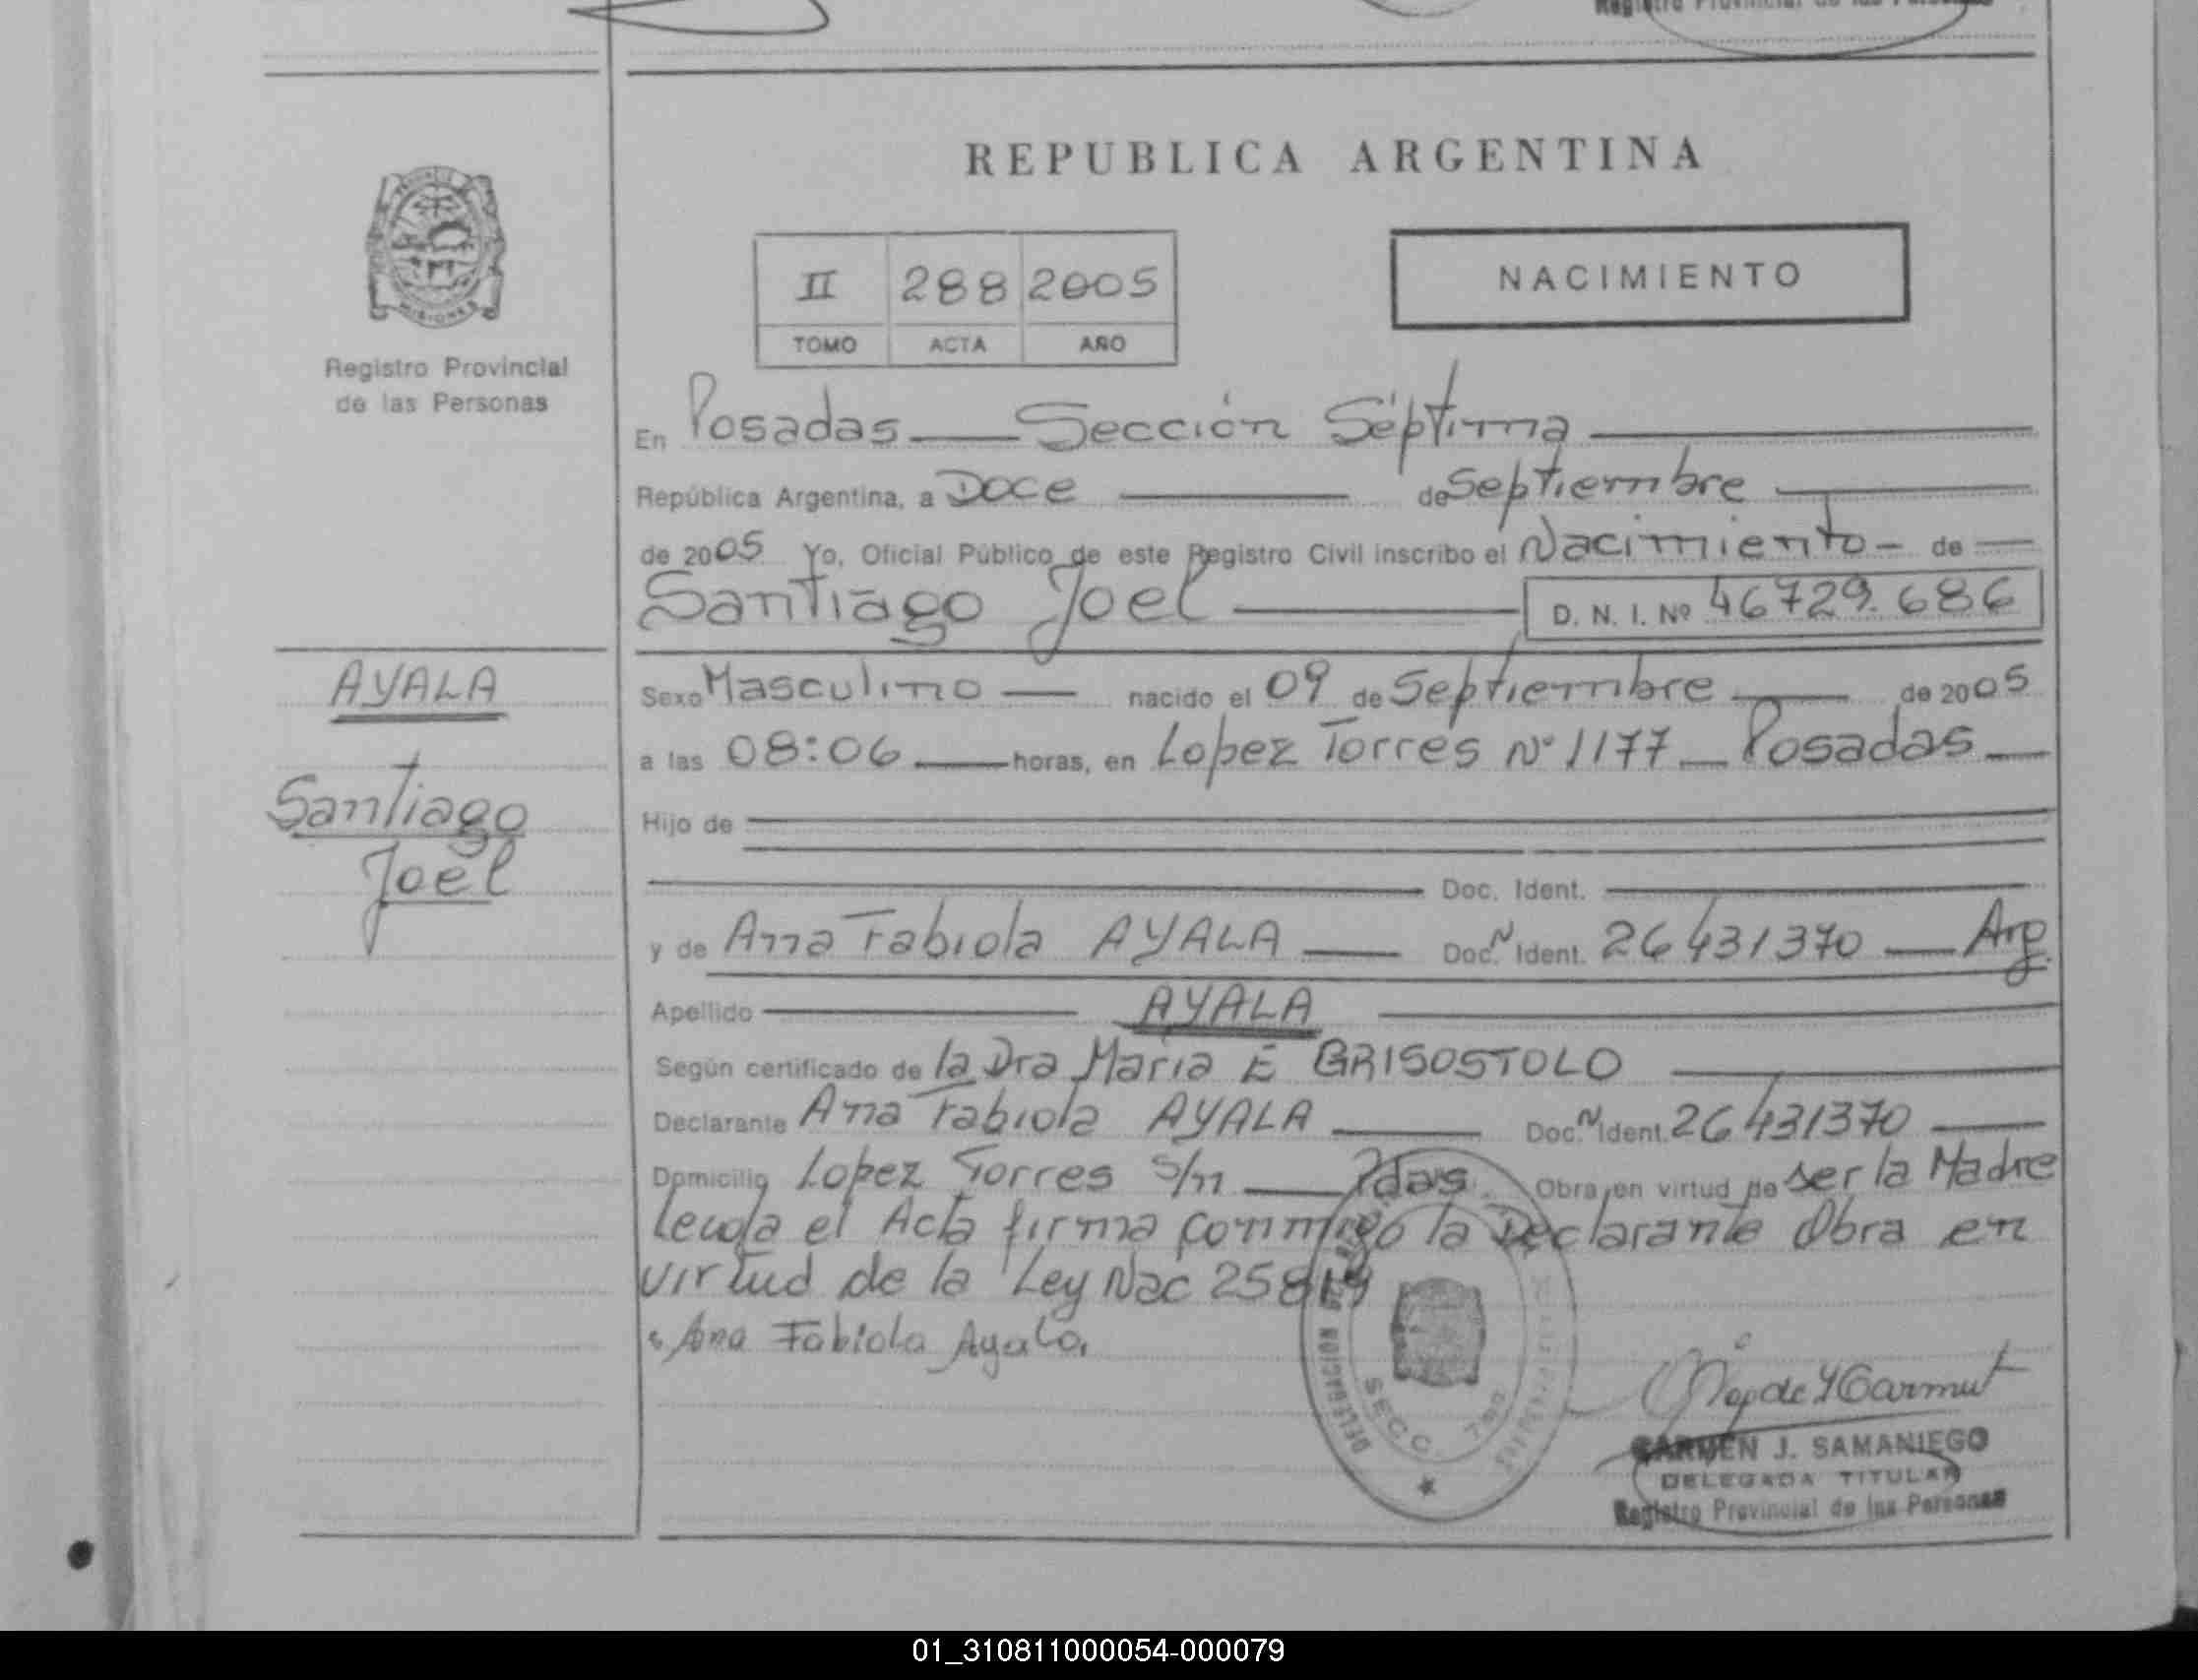 Registro Provincial de las Personas
REPUBLICA ARGENTINA
MISIONES
Registro Provincial
de las Personas
II 288 2005
TOMO ACTA AÑO
NACIMIENTO
En Posadas — Sección Séptima
República Argentina, a Doce — de Septiembre —
de 2005 Yo, Oficial Público de este Registro Civil inscribo el Nacimiento - de —
Santiago Joel — D. N. I. Nº 46729.686
AYALA
Santiago
Joel
Sexo Masculino — nacido el 09 de Septiembre — de 2005
a las 08:06 — horas, en Lopez Torres Nº 1177 — Posadas —
Hijo de —
— Doc. Ident. —
y de Ana Fabiola AYALA — Doc. N Ident. 26431370 — Arg.
Apellido — AYALA —
Según certificado de la Dra Maria E GRISOSTOLO —
Declarante Ana Fabiola AYALA — Doc. N Ident. 26431370 —
Domicilio Lopez Torres s/n — Pdas. Obra en virtud de ser la Madre
Leida el Acta firma conmigo la Declarante Obra en
virtud de la Ley Nac 25819
Ana Fabiola Ayala.
DELEGACION
SECC. 7ma
CARMEN J. SAMANIEGO
DELEGADA TITULAR
Registro Provincial de las Personas
01_310811000054-000079